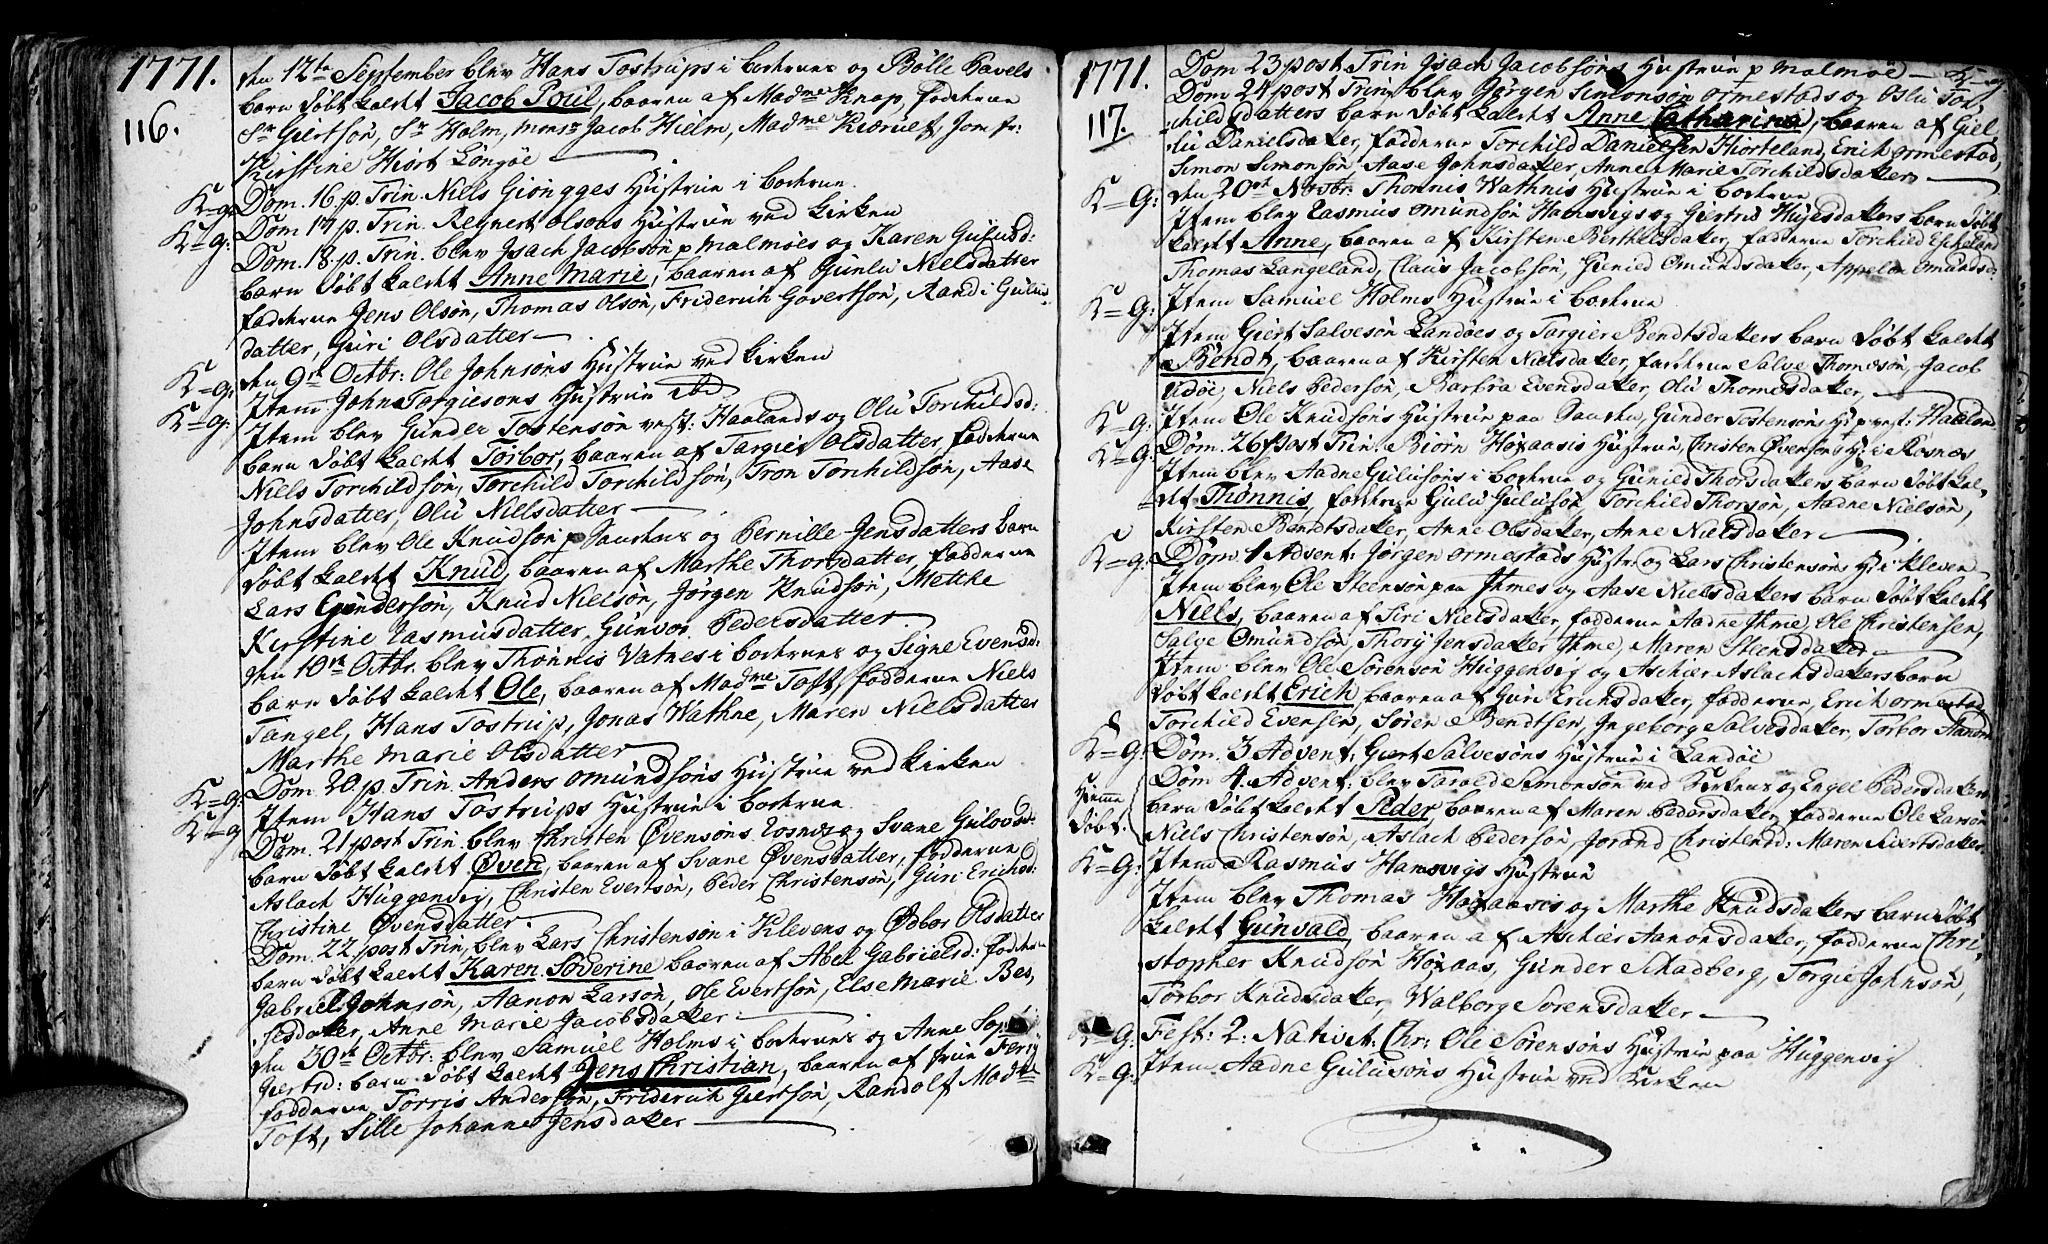 1771.
116.
den 12te September blev Hans Tostrups i bockrnes og Bolle Pavels
barn døbt kaldt Jacob Poul, baaren af Madme Knap, fadderne
Sr Giertsøn, Sr Holm, Monsr Jacob Hielm, Madme Kiørulf, Jomfr:
Kirstine Hiort Longøe
K=g: Dom. 16 p. Trin. Niels Giøngges Hustrue i bockrne.
K=g: Dom 17 p. Trin. Regnert Olsøns Hustrue ved kirken
Dom. 18. p. Trin. blev Jsach Jacobsøn p Malmøes og Karen Gulusd:
barn døbt kaldt Anne Marie, baaren af Gunlu Nielsdatter
fadderne Jens Olsøn, Thomas Olsøn, Friderich Govertsøn, Randi Gulus-
datter, Guri Olsdatter
K=g: den 9de Octbr: Ole Johnsøns Hustrue ved kirken
K=g: Item John Torgiesøns Hustrue ibd
Item blev Gunder Tostensøn vest: Haalands og Olu Torchildsd:
barn døbt kaldt Torbor, baaren af Targier Olsdatter, fadderne
Niels Torchildsøn, Torchild Torchildsøn, Tron Torchildsøn, Aase
Johnsdatter, Olu Nielsdatter
Item blev Ole Knudsøn p Sanckns og Pernille Jensdatters barn
døbt kaldt Knud, baaren af Marthe Thorsdatter, fadderne
Lars Gundersøn, Knud Nielsøn, Jørgen Knudsøn, Mettke
Kirstine Rasmusdatter, Gunvor Pedersdatter.
den 10de Octbr. blev Thonnis Vatnes i bockrnes og Signe Evensd:
barn døbt kaldt Ole, baaren af Madme Toft, fadderne Niels
Tangel, Hans Tostrup, Jonas Wathne, Maren Nielsdatter
Marthe Marie Olsdatter
K=g: Dom. 20. p. Trin. Anders Omundsøns Hustrue ved kirken
K=g Item Hans Tostrups Hustrue i bockrne.
Dom. 21 post Trin. blev Christen Øvensøns Rosnes og Svane Gulovsd:
barn døbt kaldt Øven, baaren af Svane Øvensdatter, fadderne
Aslach Huggenvig, Christen Evertsøn, Peder Christensøn, Guri Erichsd:
Christine Øvensdatter
Dom. 22 post Trin. blev Lars Christensøn i Klevens og Ødbor Olsdatter
barn døbt kaldt Karen Soverine baaren af Abel Gabrielsd: fadderne
Gabriel Johnsøn, Aanon Larsøn, Ole Evertsøn, Else Marie Bes,
sesdatter, Anne Marie Jacobsdatter
den 30de Octbr: blev Samuel Holms i bockrnes og Anne Sophi
Giertsd: barn døbt kaldt Jens Christian, baaren af frue Ferry
fadderne Torris Andersøn, Friderich Giertsøn, Randolf Madme
Toft, Sille Johanne Jensdatter
1771.
117.
Dom 23 post Trin Jsach Jacobsøns Hustrue p Malmøe K=g.
Dom 24 post Trin: blev Jørgen Simonsøn Ormestads og Oslu Tor-
child gdatters barn døbt kaldt Anne Catharina, baaren af Giel,
lu Danielsdatter, fadderne Torchild Danielsen Hiorteland, Erich Ormestad,
Simon Simonsøn, Aase Johnsdatter, Anne Marie Torchildsdatter
K=G: den 20de Novbr. Thonnis Wathnis Hustrue i bockrne
Item blev Rasmus Omundsøn Hamsvigs og Giertrud Hugesdatters barn døbt
kaldt Anne, baaren af Kirsten Berthelsdatter, fadderne Torchild Epkeland
Thomas Langeland, Claus Jacobsøn, Gunild Omundsdatter, Appelon Omundsd:
K=G: Item Samuel Holms Hustrue i bockrne
Item Giert Salvesøn Landøes og Targier Bendtsdatters barn døbt kaldt
Bendt, baaren af Kirsten Nielsdatter, fadderne Salve Thomesøn, Jacob
Udøe, Niels Pedersøn, Barbra Evensdatter, Olu Thomesdatter,
K=G: Item Ole Knudsøns Hustrue paa Sancke, Gunder Tostensøns H: p vest: Haaland
K=G: Dom. 26 post Trin. Biørn Høyaasis Hustrue, Christen Øvensøns H: i Rosnes
Item blev Aadne Gulusøns i bockrne og Gunild Thorsdatters barn døbt kal,
det Thonnis, fadderne Gulu Gulusøn, Torchild Thorsøn, Aadne Nielsøn,
Kirsten Bendtsdatter, Anne Olsdatter, Anne Nielsdatter
K=g: Dom 1 Advent: Jørgen Ormestads Hustr: og Lars Christensøns H: i Kleven
Item blev Ole Steensøn paa Jhmes og Aase Nielsdatters barn døbt kaldt
Niels, baaren af Siri Nielsdatter, fadderne Aadne Jhme, Ole Christensen,
Salve Omundsøn, Thory Jensdatter Jhme, Maren Steensdatter
Item blev Ole Sørensøn Huggenvig og Aschier Aslachsdatters barn
døbt kaldt Erich, baaren af Guri Erichsdatter, fadderne, Erich Ormestad
Torchild Evensen, Søren Bendtsen, Ingeborg Salvesdatter, Torbor Aanons
K=G: Dom. 3 Advent: Giert Salvesøns Hustrue i Landøe
Hiemme døbt. Dom 4. Advent: blev Tarald Simonsøn ved Kirkens og Engel Pedersdatters
barn døbt kaldt Peder baaren af Maren Pedersdatter, fadderne Ole Larsøn
Niels Christensøn, Aslach Pedersøn, Jorand Christensd: Maren Evertsdatter
K=G: Item Rasmus Hamsvigs Hustrue
Item blev Thomas Høyaasis og Marthe Knudsdatters barn døbt
kaldt Gunvald, baaren af Aschier Aanonsdatter, fadderne Chri,
stopher Knudsøn Høyaas, Gunder Schadberg, Torgie Johnsøn,
Torbor Knudsdatter, Walborg Sørensdatter
K=G: Fest: 2: Nativit: Chr: Ole Sørensøns Hustrue paa Huggenvig
K=G: Item Aadne Gulusøns Hustrue ved kirken